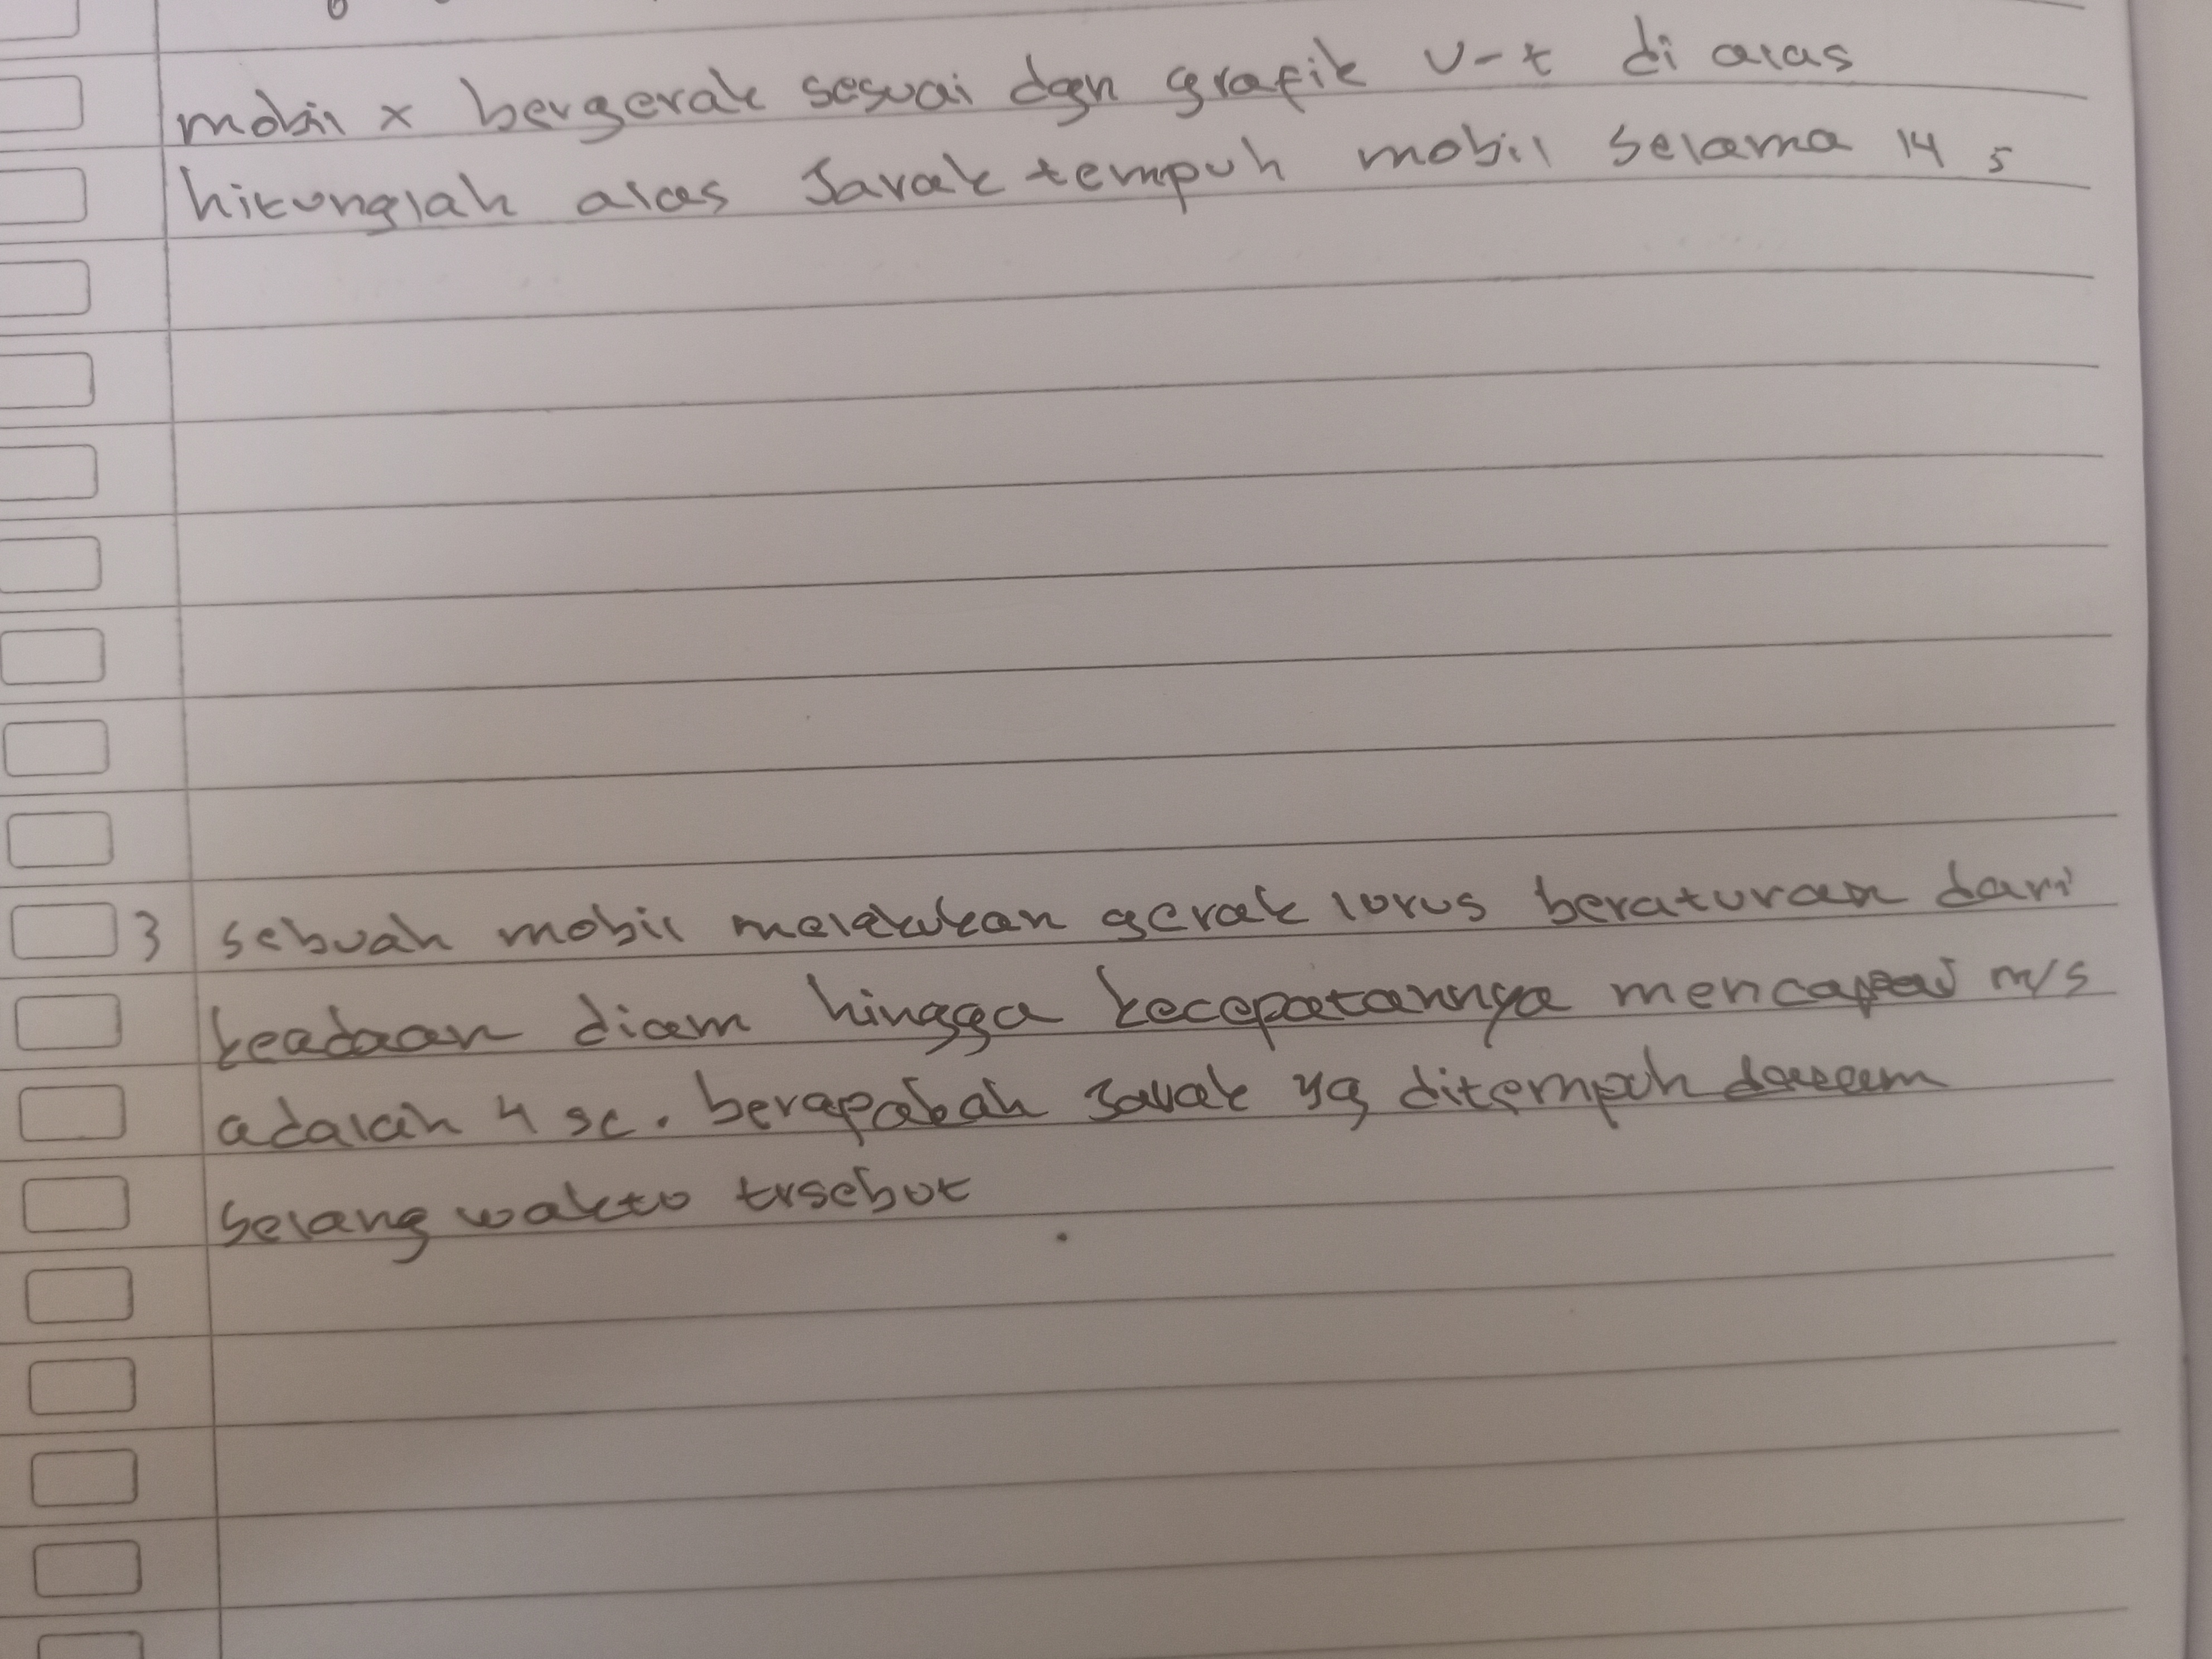 mobil x bergerak sesuai dgn grafik v-t di atas
hitunglah atas Jarak tempuh mobil selama 14 s
3 sebuah mobil melakukan gerak lurus beraturan dari
keadaan diam hingga kecepatannya mencapai m/s
adalah 4 sc. berapakah Jarak yg ditempuh dalam
selang waktu trsebut